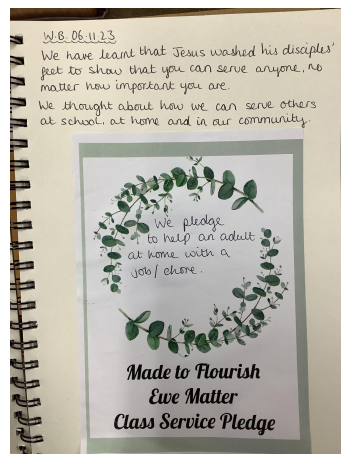 W.B. 06.11.23
We have learnt that Jesus washed his disciples'
feet to show that you can serve anyone, no
matter how important you are.
We thought about how we can serve others
at school, at home and in our community.
We pledge
to help an adult
at home with a
job/chore.
Made to Flourish
Ewe Matter
Class Service Pledge